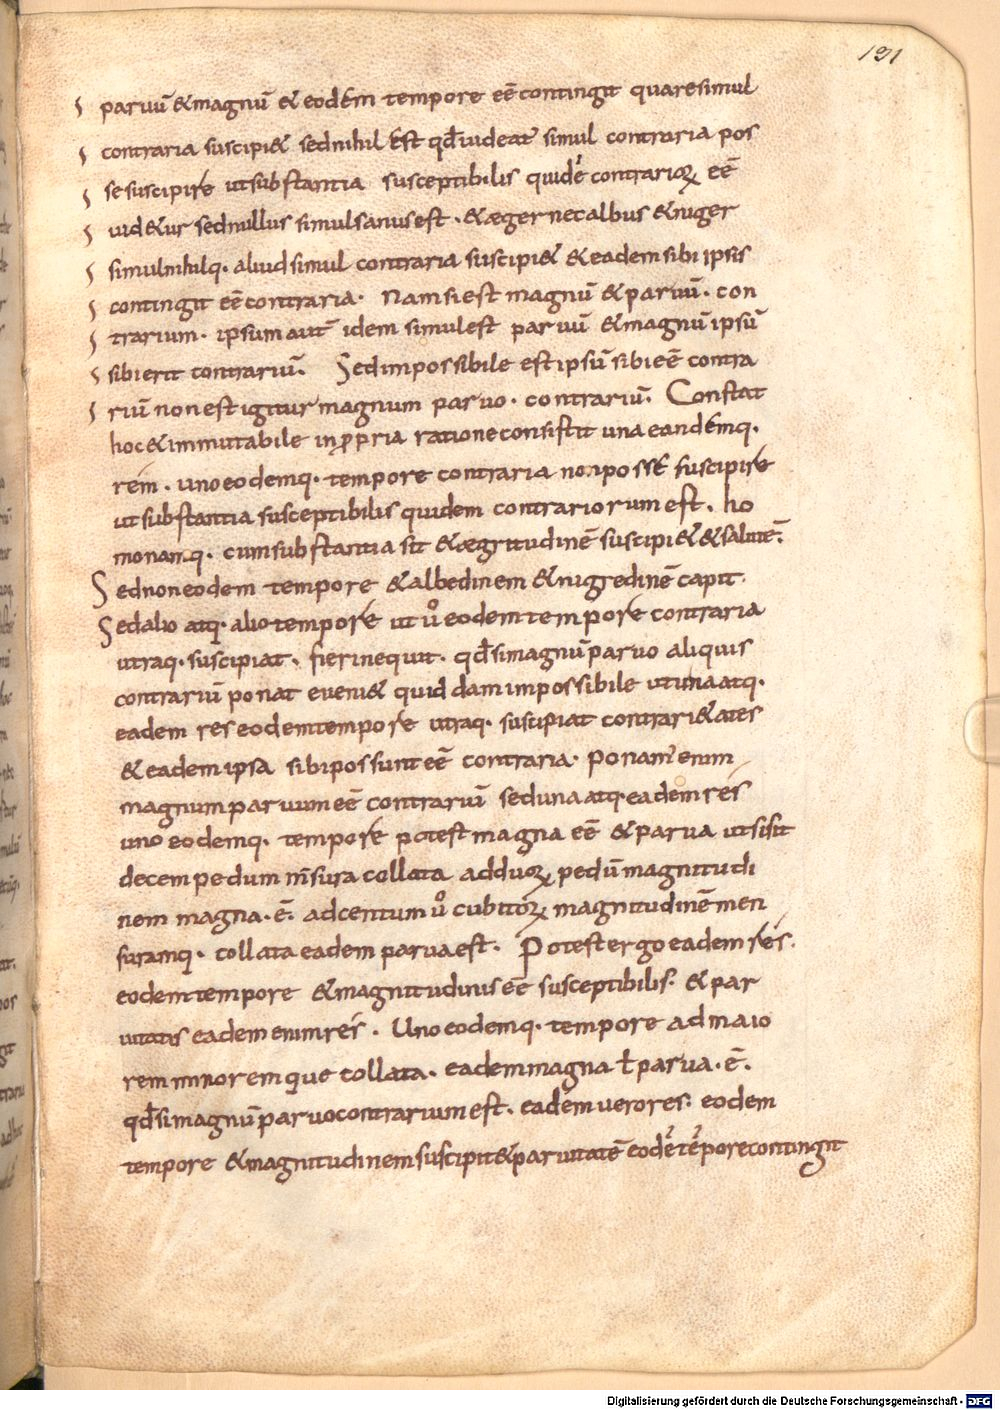 191
paruū &magnū & eodem tempore eē contingit quare simul
contraria suscipi& sed nihil est qd̄ uideat simul contraria pos
se suscipire ut substantia susceptibilis quidē contrarioꝝ eē
uid&ur sed nullus simul sanus est · &æger nec albus &niger
simul nihilq· aliud simul contraria suscipi& &eadem sibi ipsis
contingit eē contraria · Nam si est magnū &paruū · con
trarium · ipsum aut̄ idem simul est paruū &magnū ipsū
sibi erit contrariū. Sed impossibile est ipsū sibi eē contra
riū non est igitur magnum paruo · contrariū. Constat
hoc &immutabile in ꝓpria ratione consistit una eandemq·
rem · uno eodemq· tempore contraria non posse suscipire
ut substantia susceptibilis quidem contrariorum est · ho
mo namq· cum substantia sit &ægritudinē suscipi& &salutē.
Sed non eodem tempore &albedinem &nigredinē capit·
Sed alio atq· alio tempore ut ůo eodem tempore contraria
utraq· suscipiat · fieri nequit · qd̄ si magnū paruo aliquis
contrariū ponat eueni& quiddam impossibile ut una atq·
eadem res eodem tempore utraq· suscipiat contrari&ates
&eadem ipsa sibi possunt eē contraria · ponam enim
magnum paruum eē contrariū sed una atq· eadem res
uno eodemq· tempore potest magna eē &parua ut si sit
decem pedum mensura collata ad duoꝝ pedū magnitudi
nem magna · ē· ad centum ůo cubitoꝝ magnitudinē men
suramq· collata eadem parua est · Potest ergo eadem res ·
eodem tempore &magnitudinis eē susceptibilis· &par
uitatis eadem enim res · Uno eodemq· tempore ad maio
rem minoremque collata · eadem magna ł parua · ē·
qd̄ si magnū paruo contrarium est · eadem uero res· eodem
tempore &magnitudinem suscipit &paruitatē eodē tēpore contingit
Digitalisierung gefördert durch die Deutsche Forschungsgemeinschaft - DFG